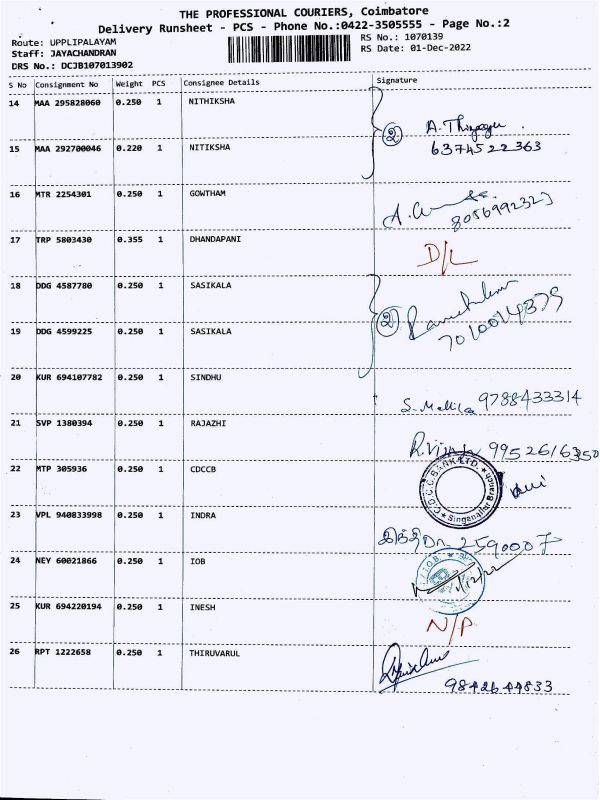 THE PROFESSIONAL COURIERS, Coimbatore
Delivery Runsheet - PCS - Phone No.:0422-3505555 - Page No.:2
Route: UPPLIPALAYAM RS No.: 1070139
Staff: JAYACHANDRAN RS Date: 01-Dec-2022
DRS No.: DCJB107013902
S No Consignment No Weight PCS Consignee Details Signature
14 MAA 295828060 0.250 1 NITHIKSHA
② A.
15 MAA 292700046 0.220 1 NITIKSHA 6374522363
16 MTR 2254301 0.250 1 GOWTHAM
17 TRP 5803430 0.355 1 DHANDAPANI D/L
18 DDG 4587780 0.250 1 SASIKALA
②
19 DDG 4599225 0.250 1 SASIKALA 7010014379
20 KUR 694107782 0.250 1 SINDHU S. 9788433314
21 SVP 1380394 0.250 1 RAJAZHI 9952616350
22 MTP 305936 0.250 1 CDCCB C.D.C.C. BANK LTD. Singanallur Branch
23 VPL 940833998 0.250 1 INDRA 2590007
24 NEY 60021866 0.250 1 IOB IOB
25 KUR 694220194 0.250 1 INESH N/P
26 RPT 1222658 0.250 1 THIRUVARUL 9842644833